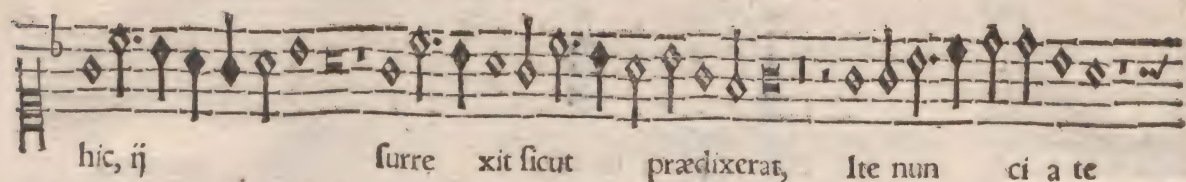 hic, ij ſurre xit ſicut prædixerat, Ite nun ci a te